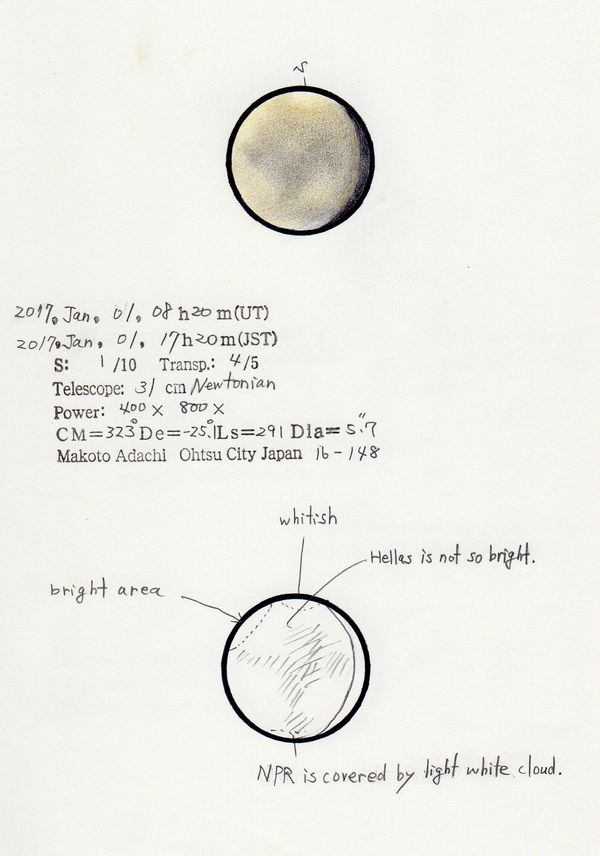 S
2017. Jan. 01, 08 h 20 m (UT)
2017. Jan. 01, 17 h 20 m (JST)
S: 1 /10 Transp.: 4/5
Telescope: 31 cm Newtonian
Power: 400 × 800 ×
CM=323° De=-25.°1 Ls=291 Dia=5."7
Makoto Adachi Ohtsu City Japan 16-148
whitish
Hellas is not so bright.
bright area
NPR is covered by light white cloud.